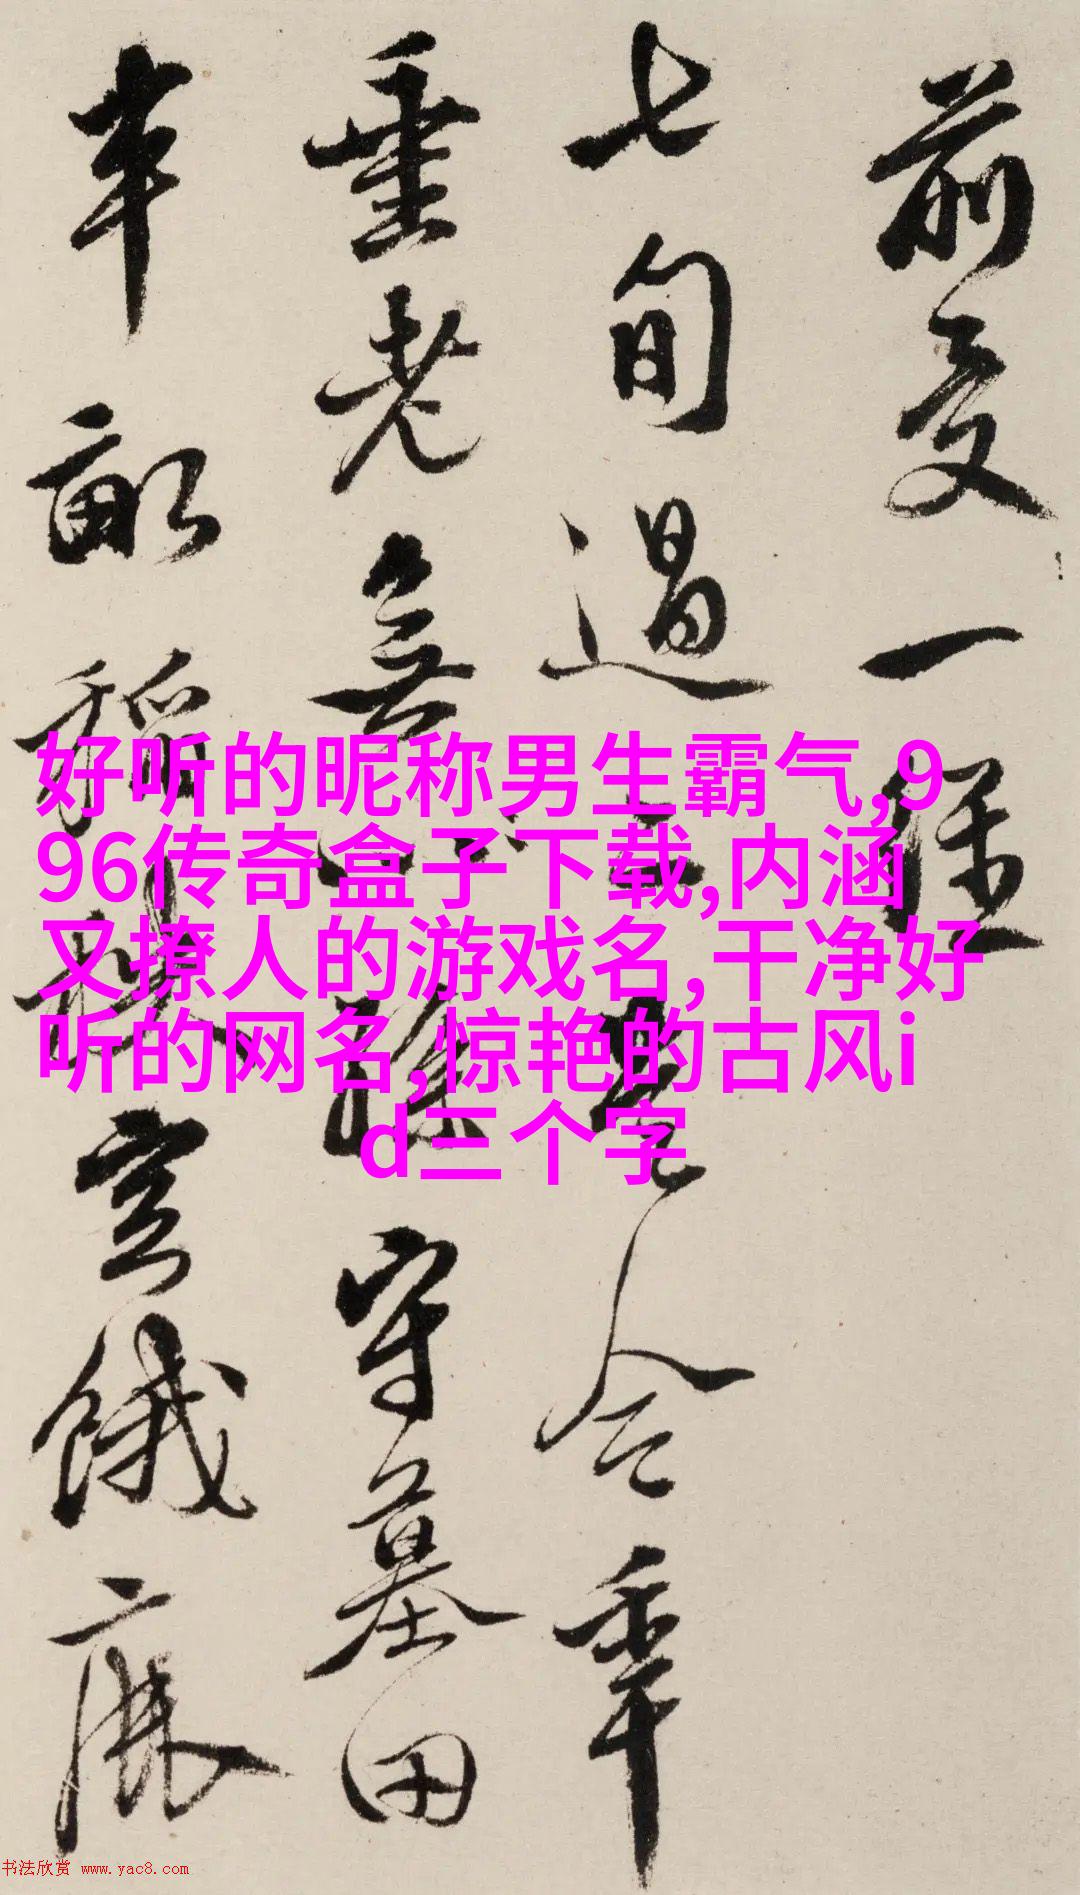 前受一
七旬過二令年
垂老無守墓田
半畝稻空餓
好听的昵称男生霸气,9
96传奇盒子下载,内涵
又撩人的游戏名,干净好
听的网名,惊艳的古风i
d三个字
书法欣赏 www.yac8.com